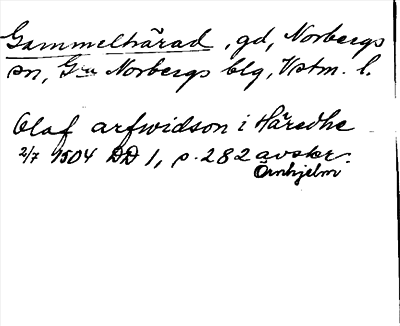 Gammelhärad, gd, Norbergs
sn, Gra Norbergs blg, Vstm. l.
Olaf arfwidson i Häredhe
2/7 1504 DD 1, p. 282 avskr.
Örnhjelm